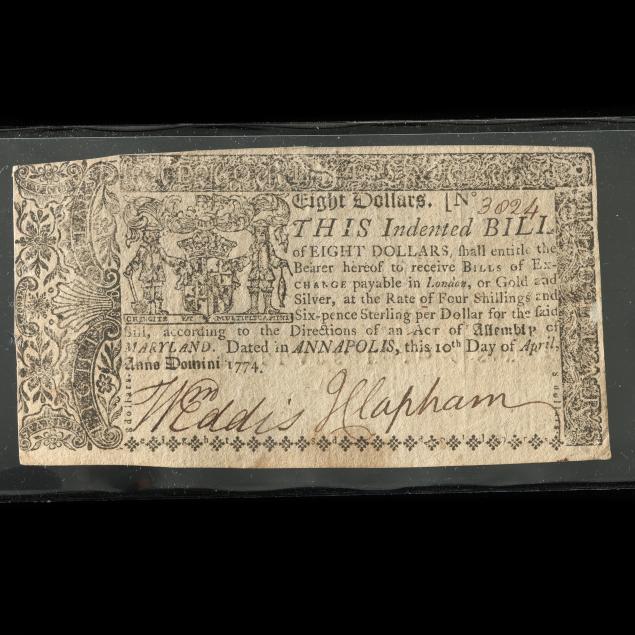 Eight Dollars. [No 3824
THIS Indented BILL
of EIGHT DOLLARS, ſhall entitle the
Bearer hereof to receive BILLS of EX-
CHANGE payable in London, or Gold and
Silver, at the Rate of Four Shillings and
CRESCITE ET MULTIPLICAMINI
Six-pence Sterling per Dollar for the ſaid
Bill, according to the Directions of an Act of Aſſembly of
MARYLAND. Dated in ANNAPOLIS, this 10th Day of April,
Anno Domini 1774.
Wm Eddis J Clapham
dollars
eight dolla